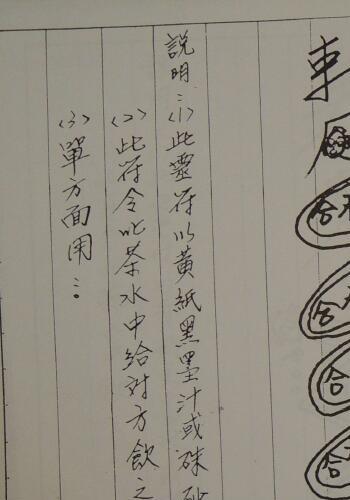 合
合
合
合
說明：〈1〉此靈符以黃紙黑墨汁或硃砂
〈2〉此符令化茶水中給対方飲之
〈3〉單方面用：。